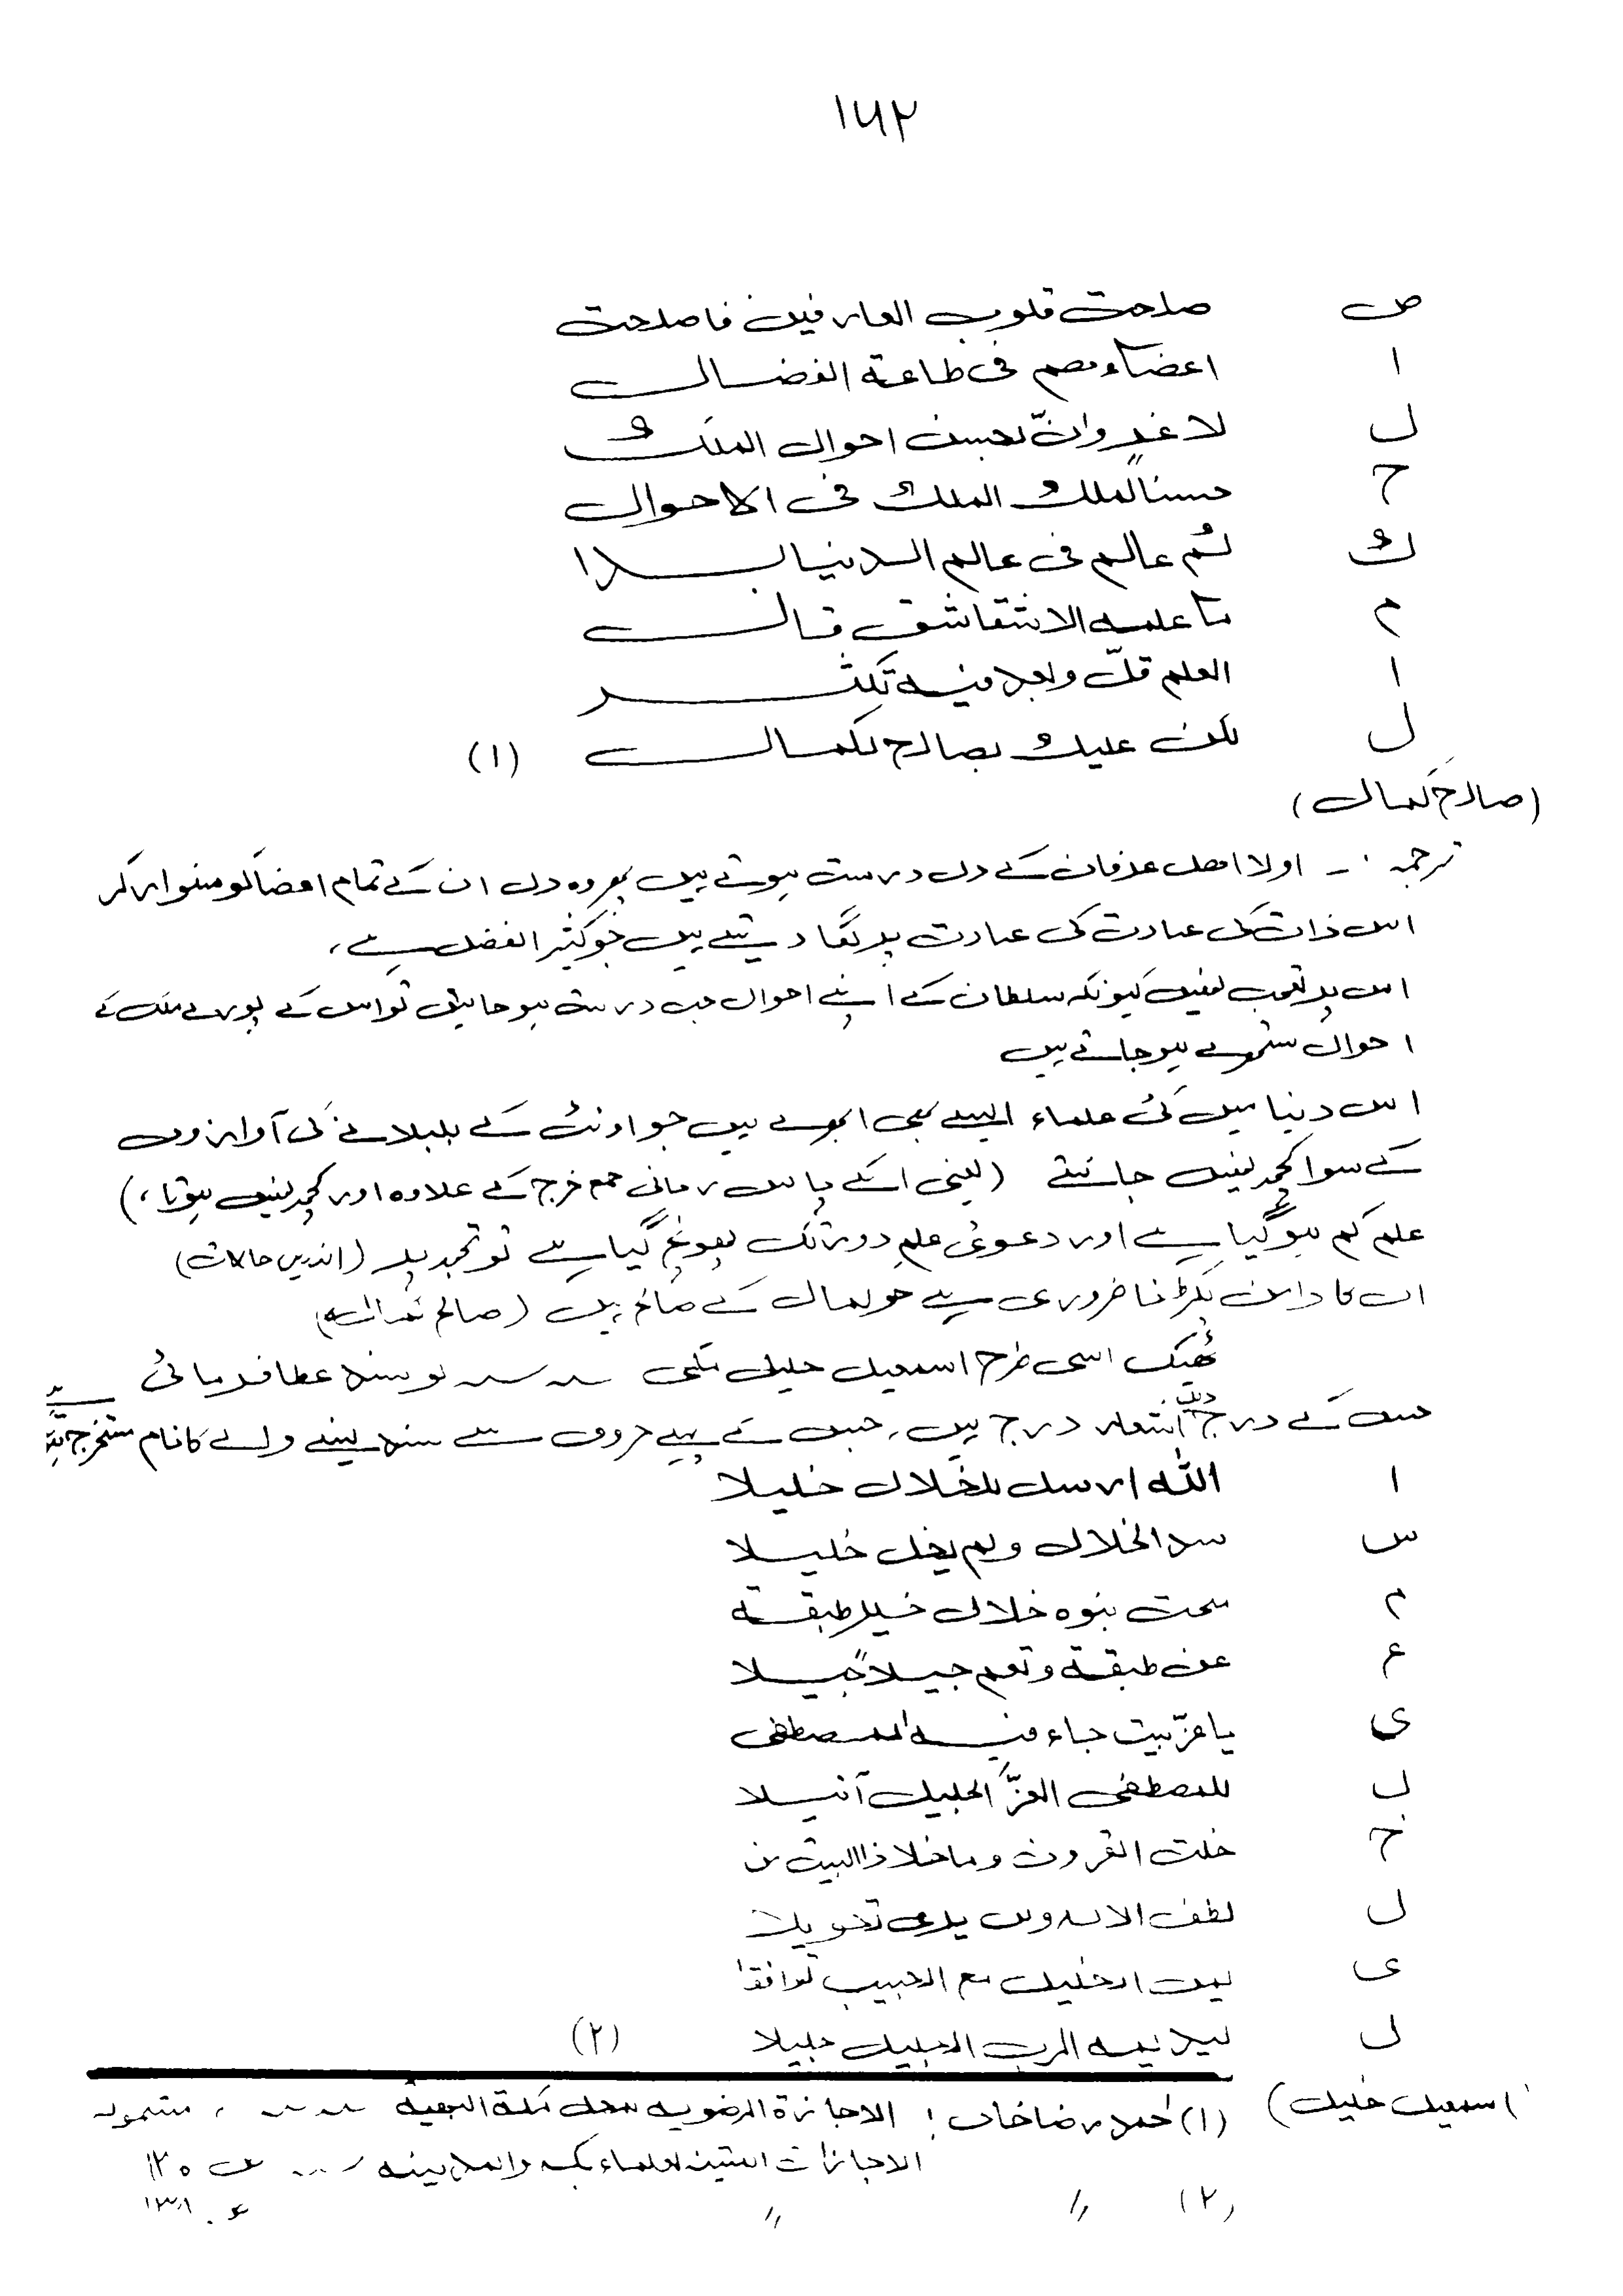 ۱۶۲
ص صلحت قلوب العارفین فاصلحت
ا اعضاءھم فی طاعۃ الفضال
ل لا غرو ان تحسن احوال الملک
ح حسناً لملک الملک فی الاحوال
ک کم عالم فی عالم الدنیا بدا
م ما علمہ الا شقاشق قال
ا العلم قلّ ولعلا فیہ تکثر
ل لکن علیک بصالح لکمال (۱)
(صالح کمال)
ترجمہ :۔ اولا اھل عرفان کے دل درست ہوتے ہیں پھر وہ دل ان کے تمام اعضا کو سنوار کر
اس ذات کی عبادت کی عبادت پر لگا دیتے ہیں جو کثیر الفضل ہے،
اس پر تعجب نہیں کیونکہ سلطان کے اپنے احوال جب درست ہو جائیں تو اس کے پورے ملک کے
احوال ستھرے ہو جاتے ہیں
اس دنیا میں کئی علماء ایسے بھی ابھرے ہیں جو اونٹ کے بلبلانے کی آوازوں
کے سوا کچھ نہیں جانتے (یعنی انکے پاس زبانی جمع خرچ کے علاوہ اور کچھ نہیں ہوتا،)
علم کم ہو گیا ہے اور دعوئ علم دور تک پھونچ گیا ہے تو تجھ پر (اندریں حالات)
ان کا دامن پکڑنا ضروری ہے جو کمال کے صالح ہیں (صالح کمال)
ٹھیک اسی طرح اسمعیل خلیل مکی ۔۔۔ کو سند عطا فرمائی
جس کے درج ذیل اشعار درج ہیں، جس کے پہلے حروف سے سند لینے والے کا نام مستخرج ہوتا ہے
ا اللہ ارسل للخلال خلیلا
س سد الخلال ولم یخل خلیلا
م محت بنوہ خلال خیر طبقۃ
ع عن طبقۃ وتعم جیلاً جیلا
ی یا عزّ بیت جاء فیہ المصطفی
ل للمصطفی العزّ الجلیل اثیلا
خ خلت القرون وما خلا ذا البیت من
ل لطف الالہ ولن یری تحویلا
ی لیت الخلیل مع الحبیب توافقا
ل لیدیمہ الرب الجلیل جلیلا (۲)
(اسمعیل خلیل)
(۱) احمد رضا خاں؛ الاجازۃ الرضویہ لمبجل مکۃ البھیۃ ۔۔۔ ، مشمولہ
الاجازات المتینہ لعلماء بکہ والمدینہ ۔۔۔ ص ۱۲۰
(۲) // // ص ۱۳۸